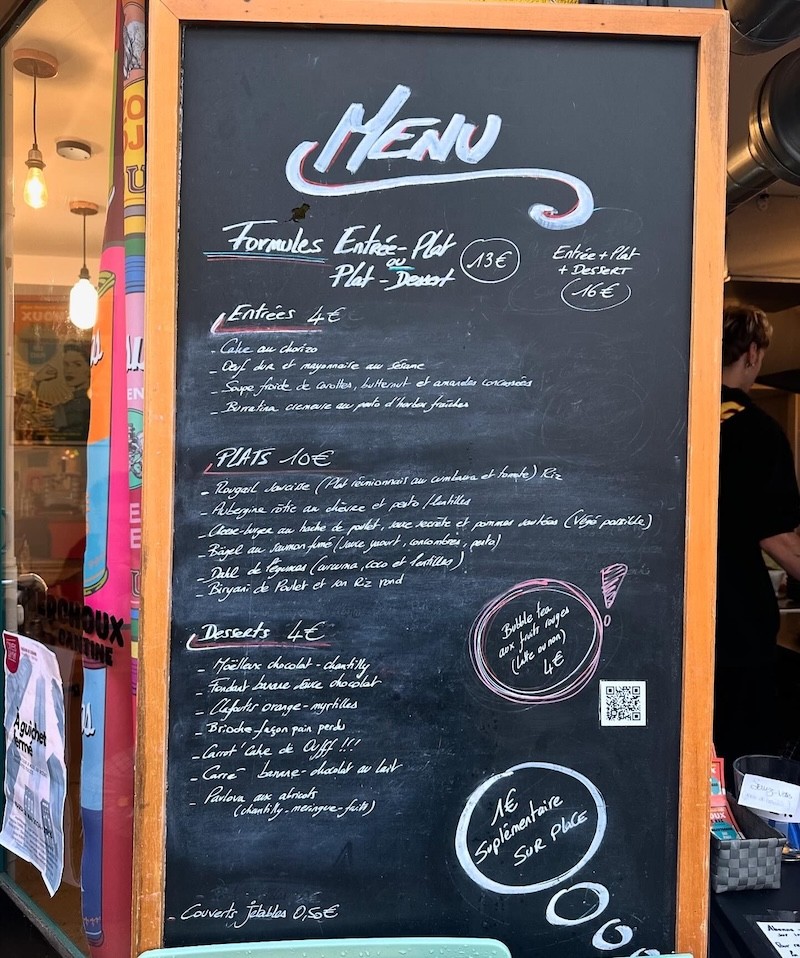 MENU
Formules Entrée-Plat 13€
ou
Plat-Dessert
Entrée+Plat
+ Dessert
16€
Entrées 4€
- Cake au chorizo
- Oeuf dur et mayonnaise au sésame
- Soupe froide de carottes, butternut et amandes concassées
- Burratina cremeuse au pesto d'herbes fraîches
PLATS 10€
- Rougail saucisse (Plat réunionnais au cumbava et tomate) Riz
- Aubergine rôtie au chèvre et pesto / lentilles
- Cheese-burger au haché de poulet, sauce secrète et pommes sautées (Végé possible)
- Bagel au saumon fumé (sauce yaourt, concombres, pesto)
- Dahl de légumes (curcuma, coco et lentilles)
- Biryani de Poulet et son Riz rond
Desserts 4€
- Moëlleux chocolat - chantilly
- Fondant banane sauce chocolat
- Clafoutis orange - myrtilles
- Brioche façon pain perdu
- Carrot' Cake de Ouff !!!
- Carré banane - chocolat au lait
- Pavlova aux abricots
(chantilly - meringue - fruits)
Bubble tea
aux fruits rouges
(Latte ou non)
4€
1€
Suplémentaire
SUR PLACE
- Couverts jetables 0,50€
ERCHOUX
CANTINE
À guichet
fermé